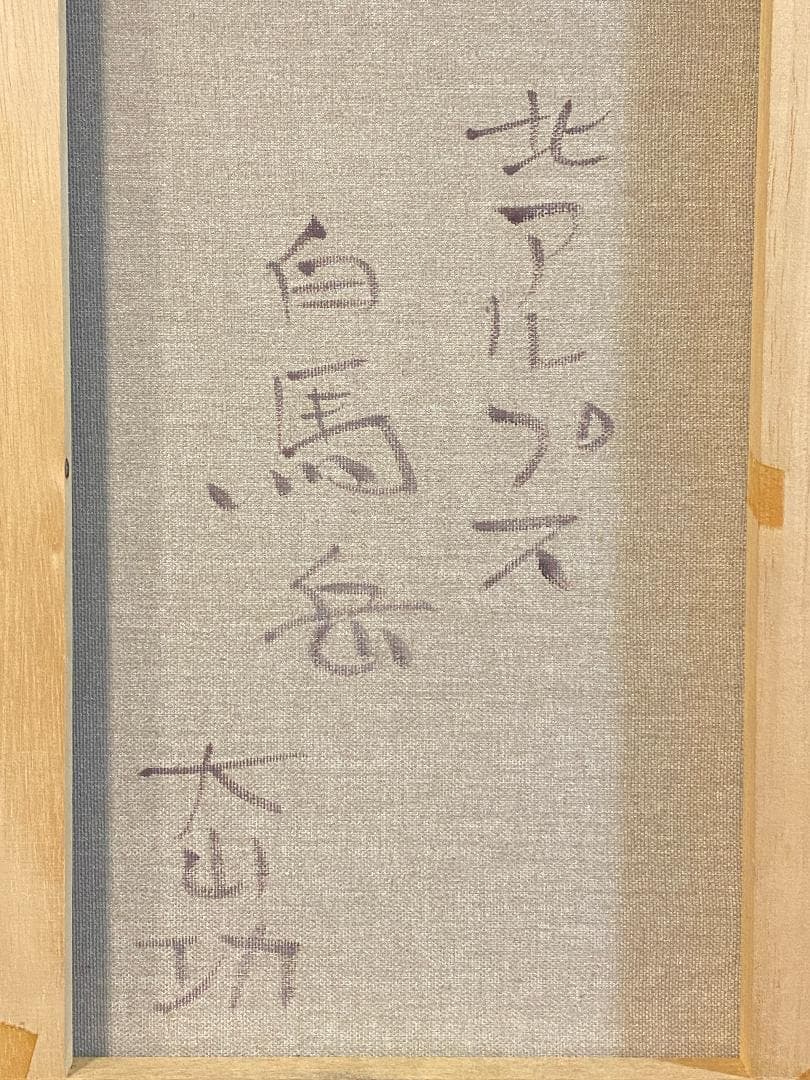 北アルプス
白馬岳
大山功